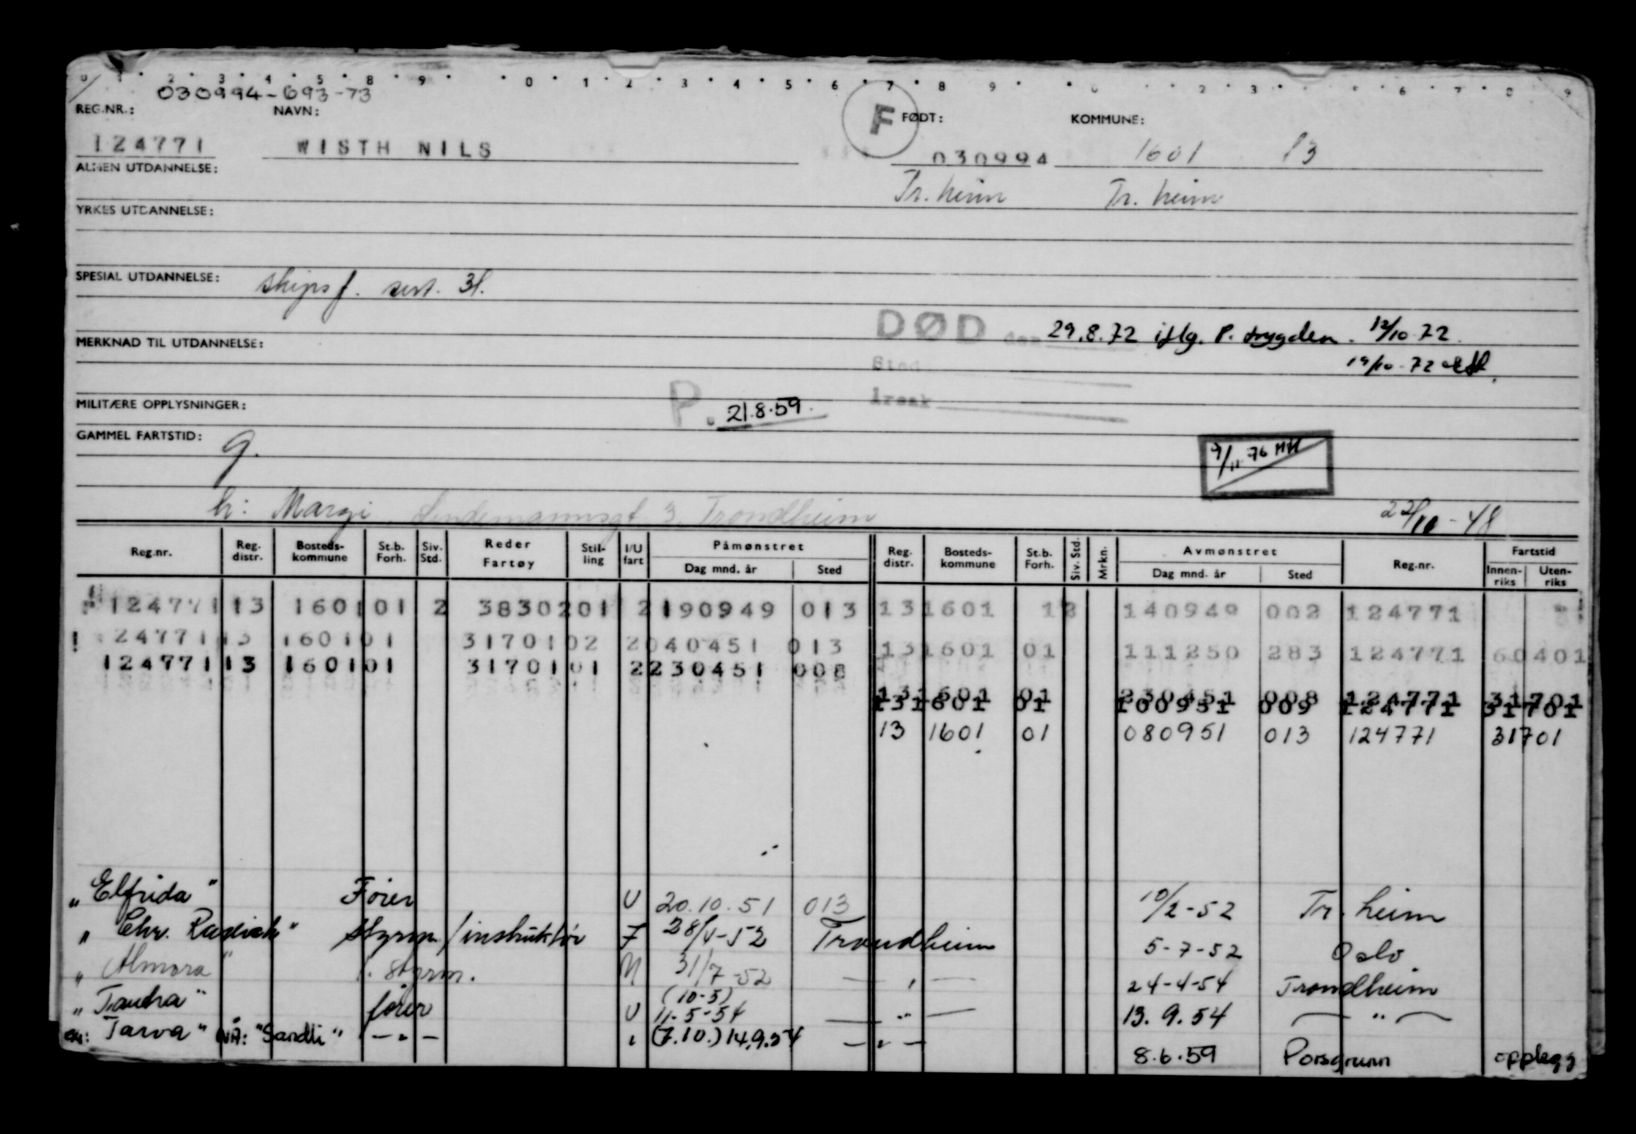 030994-693-73
REG.NR.: NAVN: F FØDT: KOMMUNE:
124771 WISTH NILS 030994 1601 13
ALMEN UTDANNELSE: Tr.heim Tr. heim
YRKES UTDANNELSE:
SPESIAL UTDANNELSE: skipsf. sert. 3l.
DØD den 29.8.72 iflg. P. trygden. 12/10 72
MERKNAD TIL UTDANNELSE:
Sted 19/10-72
Årsak
MILITÆRE OPPLYSNINGER: P. 21.8.59.
GAMMEL FARTSTID: g.
9/11 76 HH
h: Margi Lindemannsgt 3. Trondheim 22/10-48
Reg.nr. Reg. distr. Bosteds-kommune St.b. Forh. Siv. Std. Reder Fartøy Stil-ling I/U fart Påmønstret Dag mnd. år Sted Reg. distr. Bosteds-kommune St.b. Forh. Siv. Std. Mrkn. Avmønstret Dag mnd. år Sted Reg.nr. Fartstid Innen-riks Uten-riks
124771 13 1601 01 2 3830201 2 190949 013 13 1601 1 140949 002 124771
! 24771 13 1601 01 3170102 2 040451 013 13 1601 01 111250 283 124771 60401
124771 13 1601 01 3170101 2 230451 008
13 1601 01 230451 008 124771 31701
13 1601 01 100951 009 124771 31701
13 1601 01 080951 013 124771 31701
"Elfrida" Fører U 20.10.51 013 10/2-52 Tr. heim
"Chr. Radich" Styrm/instruktør F 28/4-52 Trondheim 5-7-52 Oslo
"Almora" 1. Styrm. N 31/7-52 — " — 24-4-54 Trondheim
"Traudra" fører U (10-5) 11-5-54 — " — 13.9.54 — " —
"Tarva" NÅ: "Sandli" — " — " (7.10.) 14.9.54 — " — 8.6.59 Porsgrunn opplegg